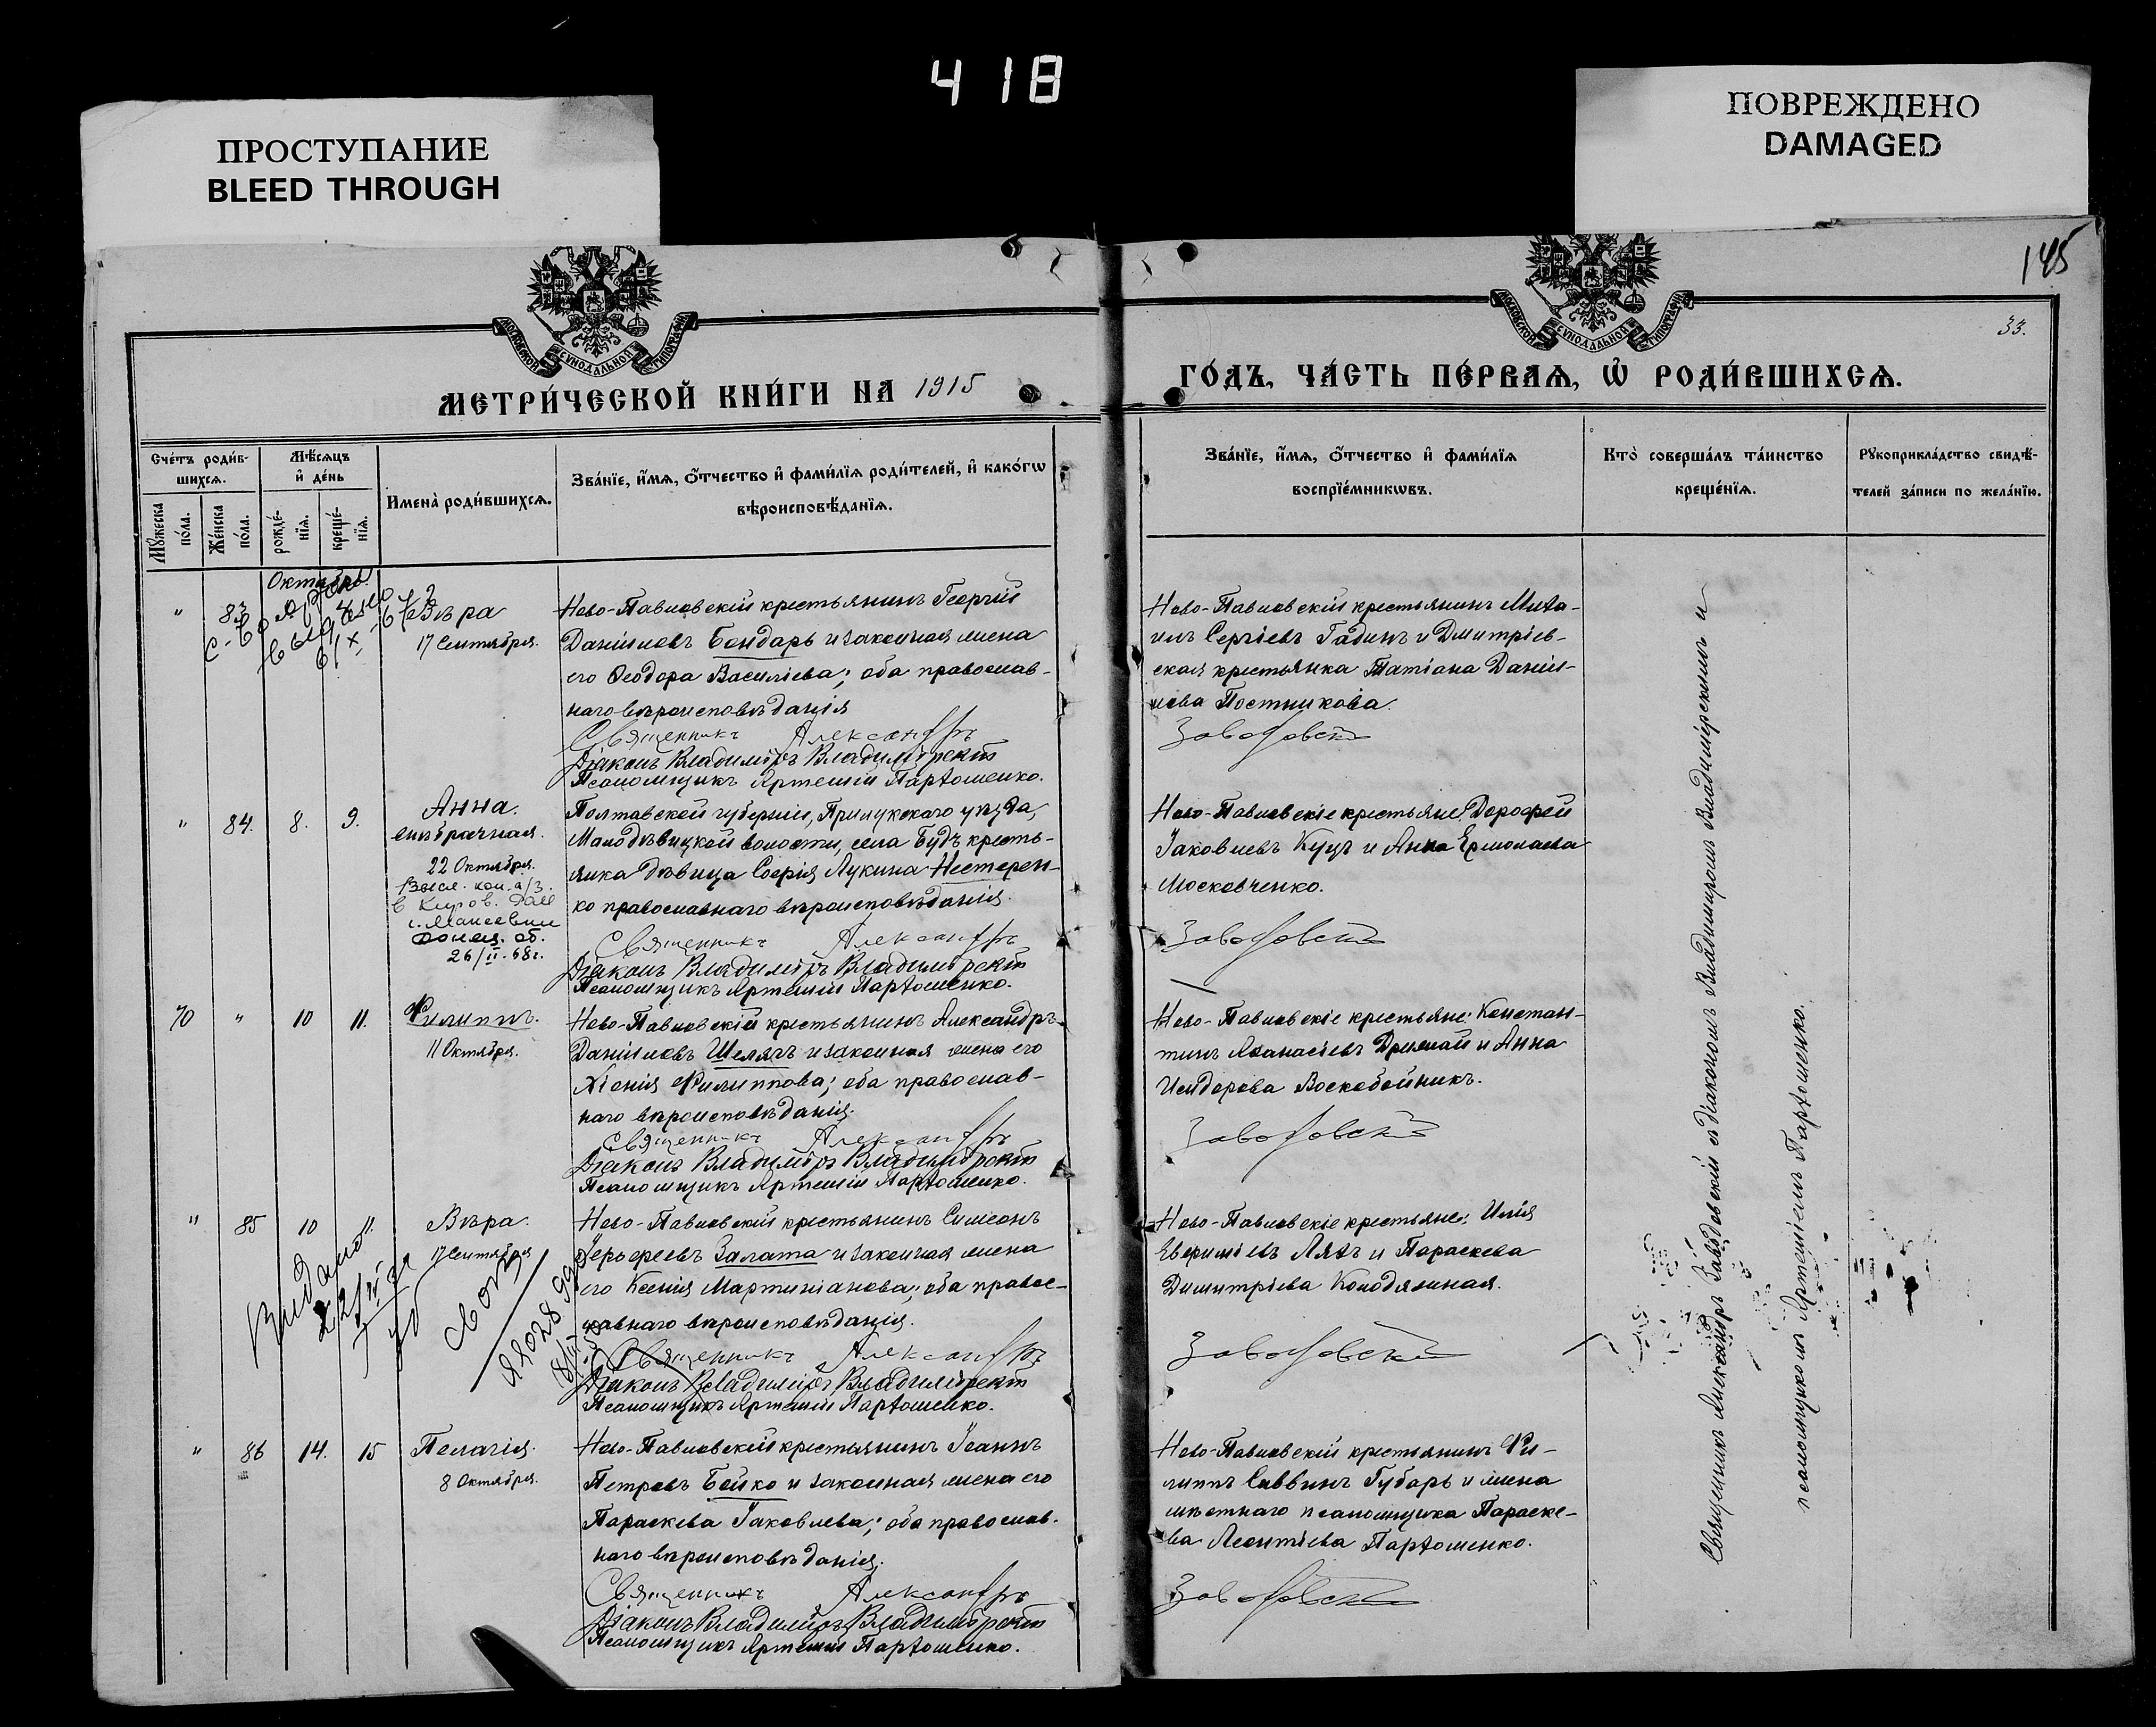 418
ПРОСТУПАНИЕ
BLEED THROUGH
ПОВРЕЖДЕНО
DAMAGED
145
33.
МОСКОВСКОЙ СѴНОДАЛЬНОЙ ТИПОГРАФІИ
МОСКОВСКОЙ СѴНОДАЛЬНОЙ ТИПОГРАФІИ
МЕТРИ́ЧЕСКОЙ КНИ́ГИ НА 1915
ГО́ДЪ, ЧА́СТЬ ПЕ́РВАѦ, Ѡ҆ РОДИ́ВШИХСѦ.
Сче́тъ роди́в-
шихсѧ.
Мꙋ́жеска по́ла.
Же́нска по́ла.
Мѣ́сѧцъ
и҆ де́нь
рожде́-
нїѧ.
креще́-
нїѧ.
Имена̀ роди́вшихсѧ.
Зва́нїе, и҆́мѧ, ѻ҆́тчество и҆ фами́лїѧ роди́телей, и҆ како́гѡ
вѣроисповѣ́данїѧ.
Зва́нїе, и҆́мѧ, ѻ҆́тчество и҆ фами́лїѧ
воспрїе́мникѡвъ.
Кто̀ соверша́лъ та́инство
креще́нїѧ.
Рꙋкоприкла́дство свидѣ́-
телей за́писи по жела́нїю.
Октябрь.
" 83 Вѣра
17 Сентября.
Ново-Павловскій крестьянинъ Георгій
Даніиловъ Бондарь и законная жена
его Ѳеодора Василіева; оба православ-
наго вѣроисповѣданія
Священникъ Александръ
Діаконъ Владиміръ Владимірскій
Псаломщикъ Артемій Пархоменко.
Ново-Павловскій крестьянинъ Миха-
илъ Сергіевъ Гадинъ и Дмитріев-
ская крестьянка Татіана Даніи-
лова Постникова.
Заводовскій
" 84. 8. 9. Анна.
внѣбрачная.
22 Октября.
26/II.68г.
Полтавской губерніи, Прилукскаго уѣзда,
Малодѣвицкой волости, села Будъ кресть-
янка дѣвица Софія Лукина Нестерен-
ко православнаго вѣроисповѣданія.
Священникъ Александръ
Діаконъ Владиміръ Владимірскій
Псаломщикъ Артемій Пархоменко.
Ново-Павловскіе крестьяне: Дорофей
Іаковлевъ Куцъ и Анна Ермолаева
Московченко.
Заводовскій
70 " 10 11. Филиппъ.
11 Октября.
Ново-Павловскій крестьянинъ Александръ
Даніиловъ Шелягъ и законная жена его
Ксенія Филиппова; оба православ-
наго вѣроисповѣданія.
Священникъ Александръ
Діаконъ Владиміръ Владимірскій
Псаломщикъ Артемій Пархоменко.
Ново-Павловскіе крестьяне: Констан-
тинъ Аѳанасіевъ Дрижай и Анна
Исидорова Воскобойникъ.
Заводовскій
" 85 10 11. Вѣра.
17 Сентября
Видано
Ново-Павловскій крестьянинъ Симеонъ
Залата и законная жена
его Ксенія Мартиніанова; оба право-
славнаго вѣроисповѣданія.
Священникъ Александръ
Діаконъ Владиміръ Владимірскій
Псаломщикъ Артемій Пархоменко.
Ново-Павловскіе крестьяне: Илія
Евѳиміевъ Ляхъ и Параскева
Димитріева Колодяжная.
Заводовскій
" 86 14. 15 Пелагія.
8 Октября.
Ново-Павловскій крестьянинъ Іоаннъ
Петровъ Бойко и законная жена его
Параскева Іаковлева; оба православ-
наго вѣроисповѣданія.
Священникъ Александръ
Діаконъ Владиміръ Владимірскій
Псаломщикъ Артемій Пархоменко.
Ново-Павловскій крестьянинъ Фи-
липпъ Саввинъ Губарь и жена
мѣстнаго псаломщика Параске-
ва Леонтіева Пархоменко.
Заводовскій
Священникъ Александръ Заводовскій съ діакономъ Владиміромъ Владимірскимъ и
псаломщикомъ Артеміемъ Пархоменко.